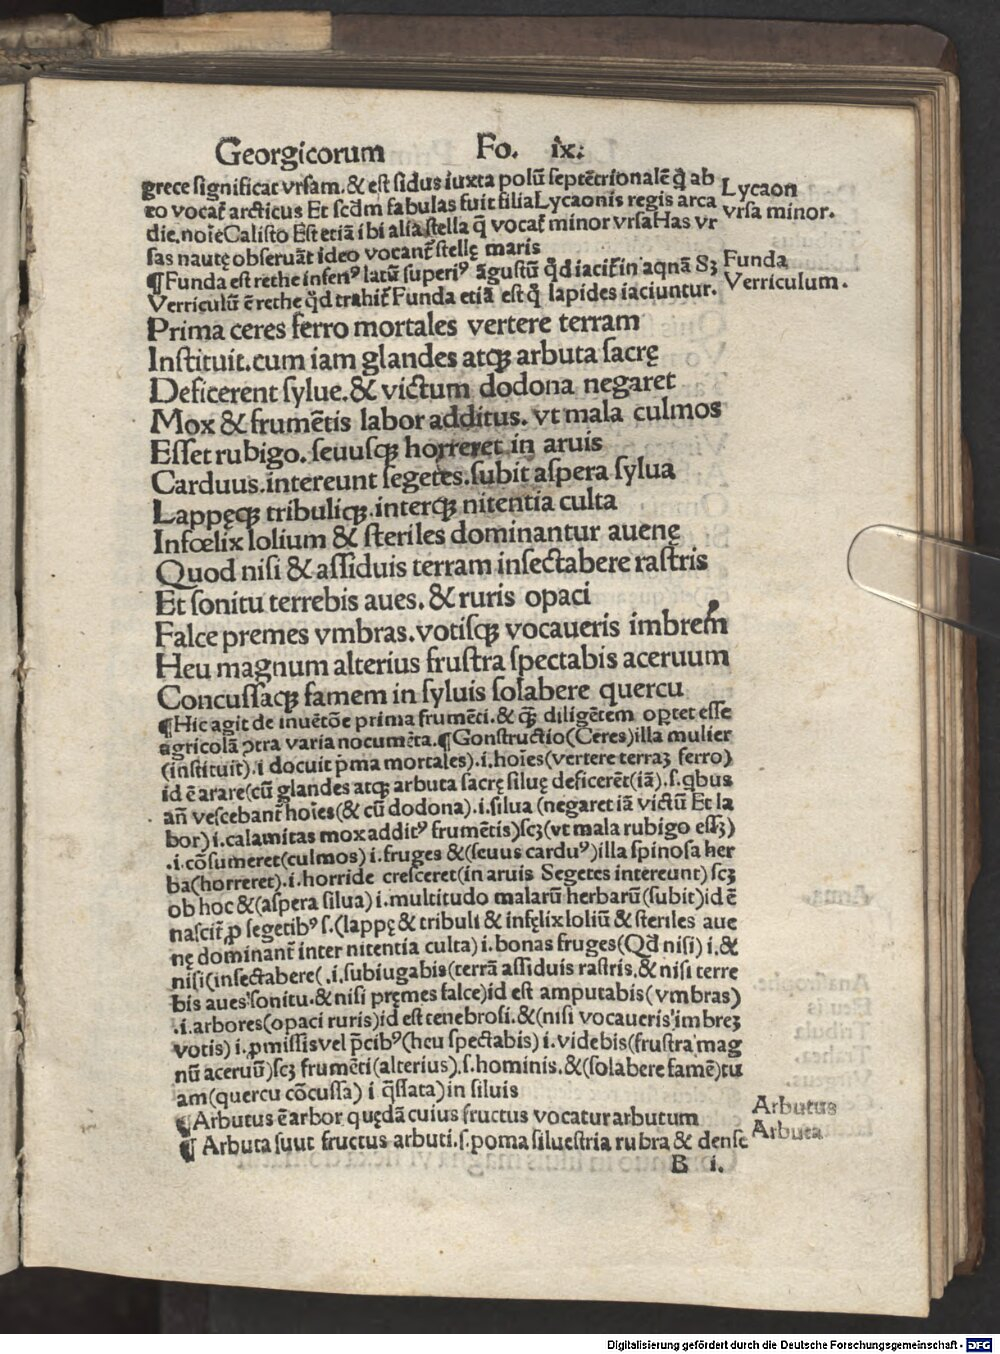 Georgicorum Fo. ix:
grece significat vrsam. & est sidus iuxta polū septētrionalē q̄ ab
eo vocat̄ arcticus Et scd̄m fabulas fuit filia Lycaonis regis arca
Lycaon
die. noīe Calisto Est etiā ibi alia stella q̄ vocat̄ minor vrsa Has vr
vrsa minor.
sas nautę obseruāt ideo vocant̄ stellę maris
¶Funda est rethe inferiꝰ latū superiꝰ āgustū q̄d iacit̄ in aqnā Sꝫ
Funda
Verriculū ē rethe q̄d trahit̄ Funda etiā est q̄ lapides iaciuntur.
Verriculum.
Prima ceres ferro mortales vertere terram
Instituit. cum iam glandes atqꝫ arbuta sacrę
Deficerent sylue. & victum dodona negaret
Mox & frumētis labor additus. vt mala culmos
Esset rubigo. seuusqꝫ horreret in aruis
Carduus. intereunt segetes. subit aspera sylua
Lappęqꝫ tribuliqꝫ. interqꝫ nitentia culta
Infœlix lolium & steriles dominantur auenę
Quod nisi & assiduis terram insectabere rastris
Et sonitu terrebis aues. & ruris opaci
Falce premes vmbras. votisqꝫ vocaueris imbrem
Heu magnum alterius frustra spectabis aceruum
Concussaqꝫ famem in syluis solabere quercu
¶Hic agit de inuētōe prima frumēti. & qꝫ̄ diligētem oꝑtet esse
agricolā ꝯtra varia nocumēta. ¶Gonstructio(Ceres)illa mulier
(instituit). i docuit p̄ma mortales). i. hoīes(vertere terraꝫ ferro)
id ē arare(cū glandes atqꝫ arbuta sacrę siluę deficerēt(iā). s. qbus
an̄ vescebant̄ hoīes(& cū dodona). i. silua (negaret iā victū Et la
bor) i. calamitas mox additꝰ frumētis)scꝫ(vt mala rubigo essꝫ)
. i. cōsumeret(culmos) i. fruges &(seuus carduꝰ)illa spinosa her
ba(horreret). i. horride cresceret(in aruis Segetes intereunt) scꝫ
ob hoc &(aspera silua) i. multitudo malarū herbarū(subit)id ē
nascit̄ ꝓ segetibꝰ s. (lappę & tribuli & infęlix loliū & steriles aue
nę dominant̄ inter nitentia culta) i. bonas fruges(Qd̄ nisi) i. &
nisi(insectabere(. i. subiugabis(terrā assiduis rastris. & nisi terre
bis aues sonitu. & nisi pręmes falce)id est amputabis(vmbras)
. i. arbores(opaci ruris)id est tenebrosi. &(nisi vocaueris imbreꝫ
votis) i. ꝓmissis vel p̄cibꝰ(heu spectabis) i. videbis(frustra mag
nū aceruū)scꝫ frumēti(alterius). s. hominis. &(solabere famē)tu
am(quercu cōcussa) i q̄ssata)in siluis
¶Arbutus ē arbor quędā cuius fructus vocatur arbutum
Arbutus
¶ Arbuta suut fructus arbuti. s. poma siluestria rubra & dense
Arbuta
B i.
Digitalisierung gefördert durch die Deutsche Forschungsgemeinschaft - DFG